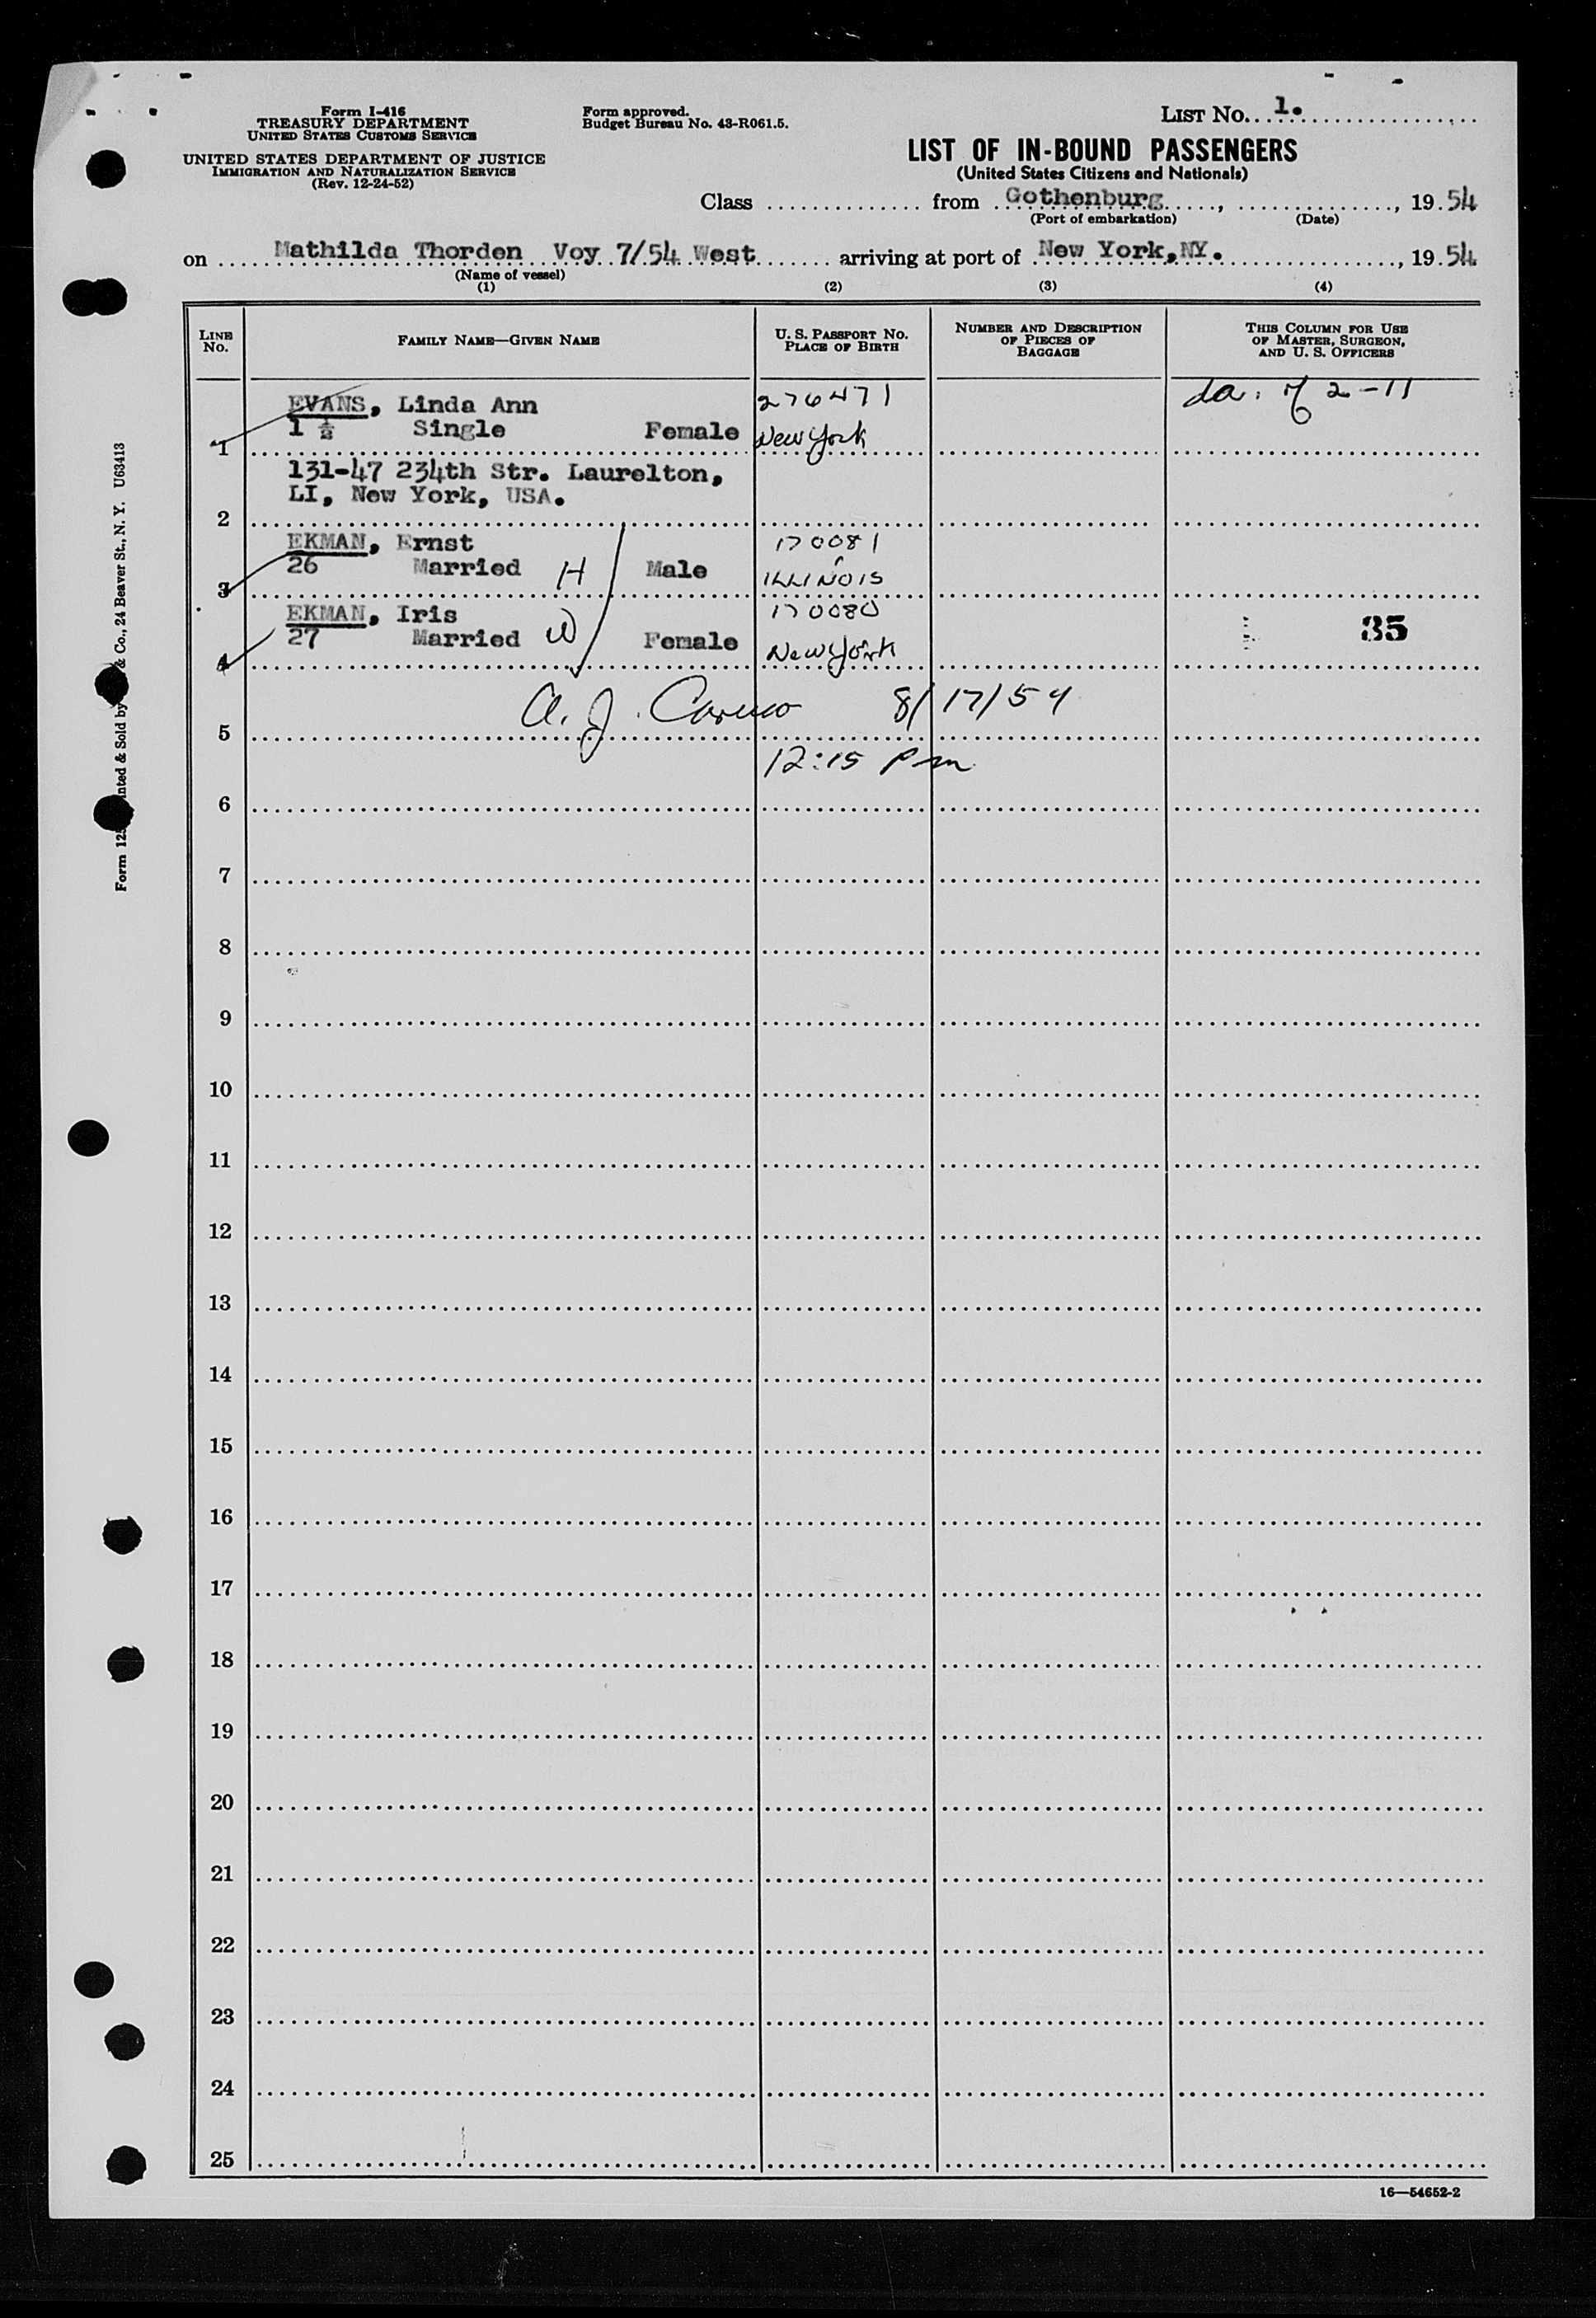 Form I-416
TREASURY DEPARTMENT
UNITED STATES CUSTOMS SERVICE
UNITED STATES DEPARTMENT OF JUSTICE
IMMIGRATION AND NATURALIZATION SERVICE
(Rev. 12-24-52)
Form approved.
Budget Bureau No. 43-R061.5.
LIST NO. 1.
LIST OF IN-BOUND PASSENGERS
(United States Citizens and Nationals)
Class from Gothenburg, , 1954
(Port of embarkation) (Date)
on Mathilda Thorden Voy 7/54 West arriving at port of New York, NY. , 1954
(Name of vessel)
(1) (2) (3) (4)
LINE NO.
FAMILY NAME—GIVEN NAME
U. S. PASSPORT NO.
PLACE OF BIRTH
NUMBER AND DESCRIPTION
OF PIECES OF
BAGGAGE
THIS COLUMN FOR USE
OF MASTER, SURGEON,
AND U. S. OFFICERS
EVANS, Linda Ann 276471 da. of 2-11
1 1 ½ Single Female New York
131-47 234th Str. Laurelton,
LI, New York, USA.
2
EKMAN, Ernst 170081
3 26 Married H Male ILLINOIS
EKMAN, Iris 170080
4 27 Married W Female New York 35
A. J. Caruso 8/17/54
5
12:15 Pm
6
7
8
9
10
11
12
13
14
15
16
17
18
19
20
21
22
23
24
25
16—54652-2
& Co., 24 Beaver St., N. Y. U63413